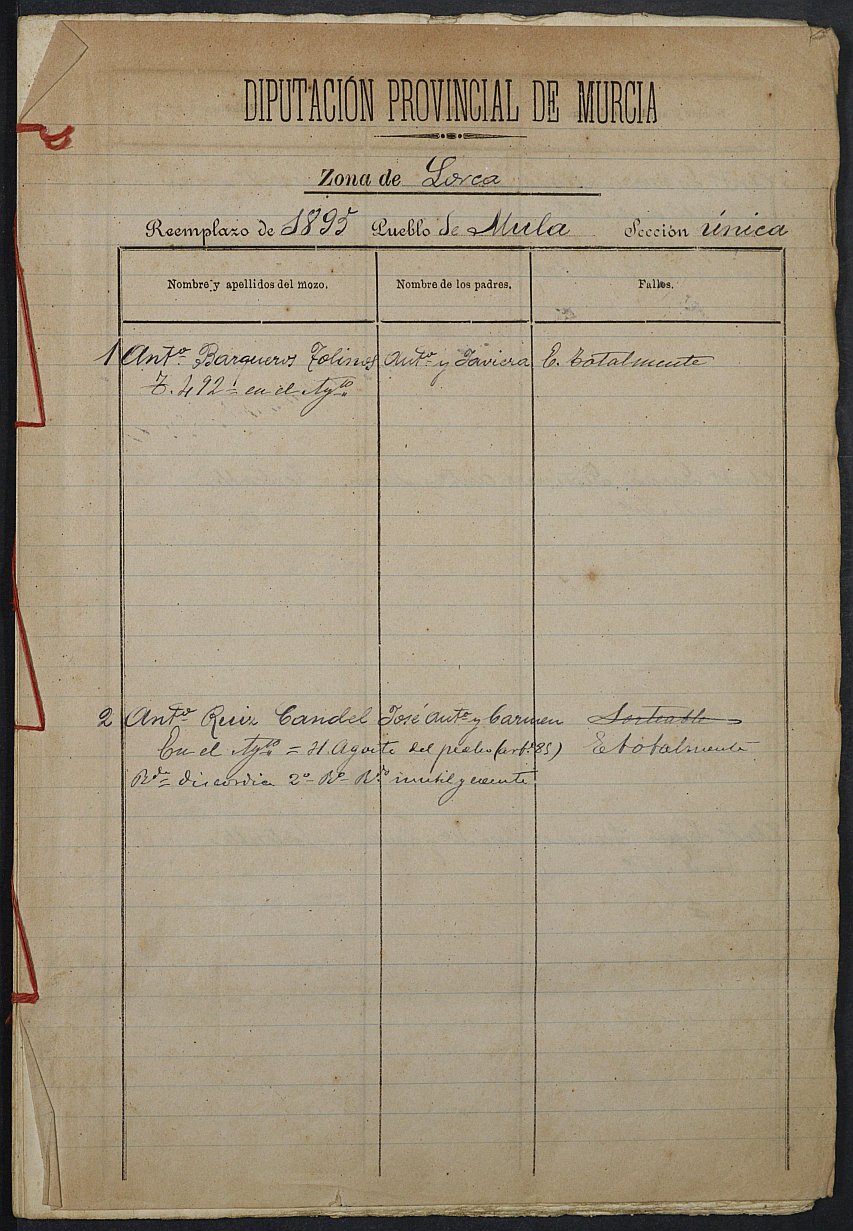 DIPUTACIÓN PROVINCIAL DE MURCIA
Zona de Lorca
Reemplazo de 1895 Pueblo de Mula Sección única
Nombre y apellidos del mozo. Nombre de los padres. Fallos.
1 Antº Barqueros Antº y Javiera E. totalmente
T. 492 en el Aytº
2 Antº Ruiz Candel José Antº y Carmen Sorteable
En el Aytº = del pecho (artº 85) E totalmente
discordia 2º Rº inutil y exente